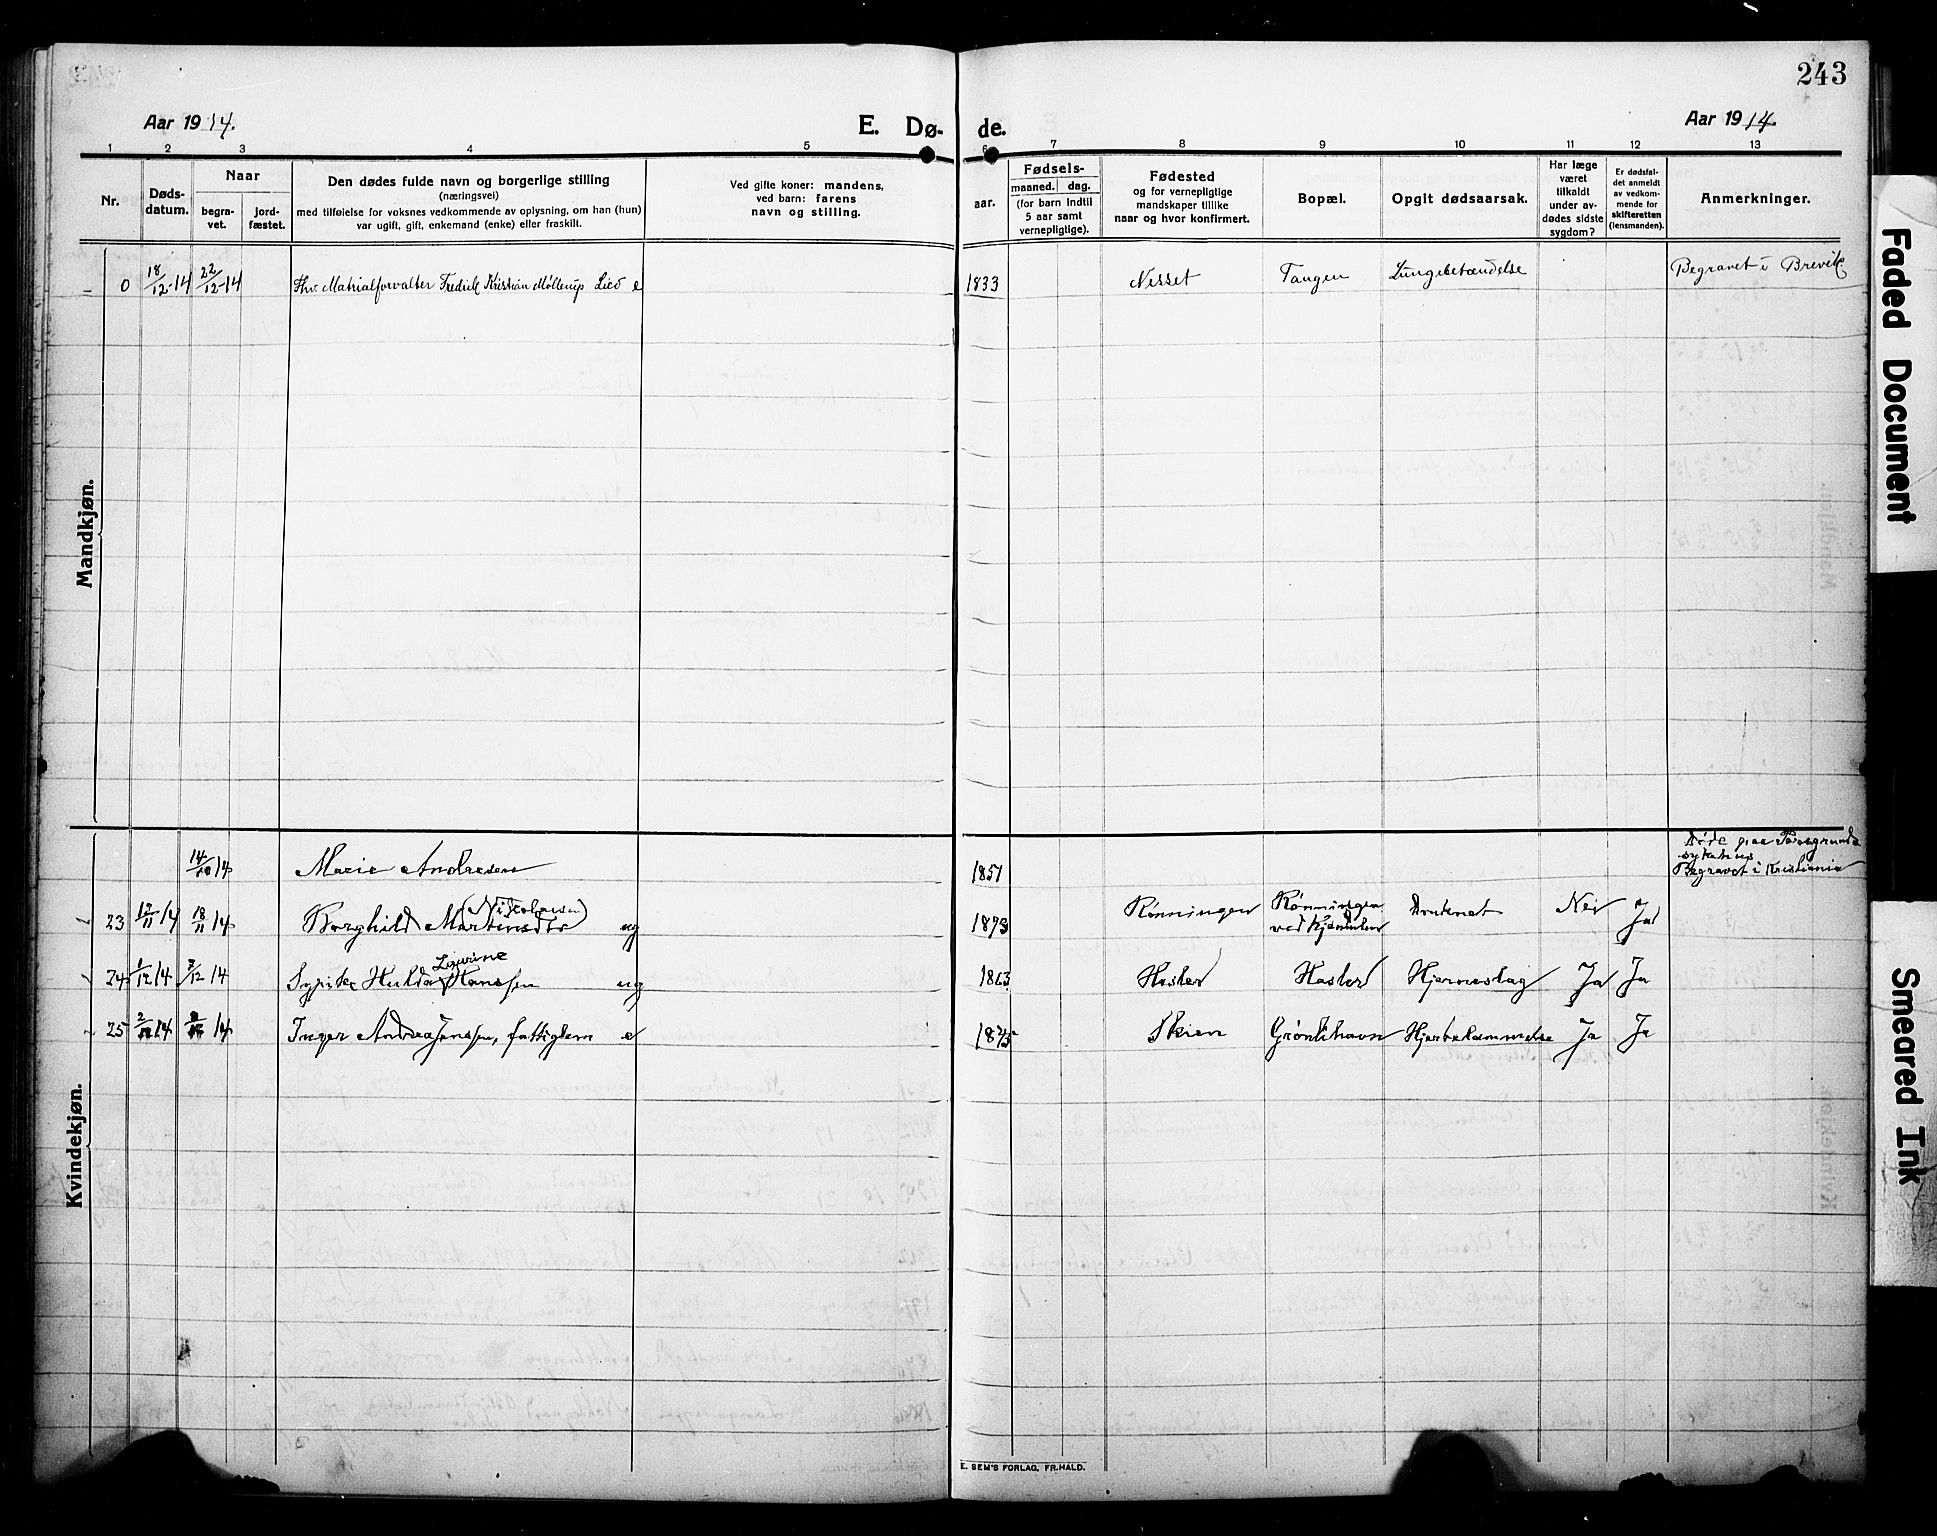 243
Aar 1914.
E. Dø-
de.
Aar 1914.
1 2 3 4 5 6 7 8 9 10 11 12 13
Nr.
Døds-
datum.
Naar
begra-
vet.
jord-
fæstet.
Den dødes fulde navn og borgerlige stilling
(næringsvei)
med tilføielse for voksnes vedkommende av oplysning, om han (hun)
var ugift, gift, enkemand (enke) eller fraskilt.
Ved gifte koner: mandens,
ved barn: farens
navn og stilling.
aar.
Fødsels-
maaned. dag.
(for barn indtil
5 aar samt
vernepligtige).
Fødested
og for vernepligtige
mandskaper tillike
naar og hvor konfirmert.
Bopæl.
Opgit dødsaarsak.
Har læge
været
tilkaldt
under av-
dødes sidste
sygdom?
Er dødsfal-
det anmeldt
av vedkom-
mende for
skifteretten
(lensmanden).
Anmerkninger.
Mandkjøn.
0 18/12-14 22/12-14 Fhv. Matrialforvalter Fredrik Kristian Møllerup Lied e 1833 Nesset Tangen Lungebetændelse Begravet i Brevik.
Kvindekjøn.
14/10 14 Marie Andresen 1851 Døde paa Porsgrunds
sykehus
Begravet i Kristiania
23 12/11 14 18/11 14 Borghild Martinsdtr (Nikolaisen) ug 1893 Rønningen Rønningen
ved Druknet Nei Ja
24 1/12 14 7/12 14 Hulda Lovrine Hanssen ug 1863 Høsler Hjerneslag Ja Ja
25 2/12 14 14 Inger Andrea Jenssen, fattiglem e 1845 Skien Grønlihavn Ja Ja
E. SEM'S FORLAG, FR.HALD.
Faded Document
Smeared Ink